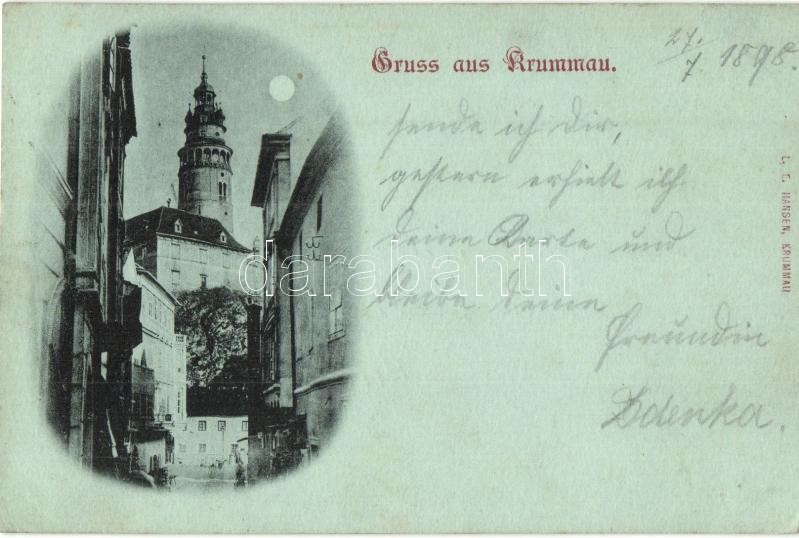 Gruss aus Krummau.
27./7. 1898.
sende ich Dir,
gestern erhielt ich
deine Karte und
bleibe deine
Freundin
Zdenka.
L. E. HANSEN, KRUMMAU
darabanth